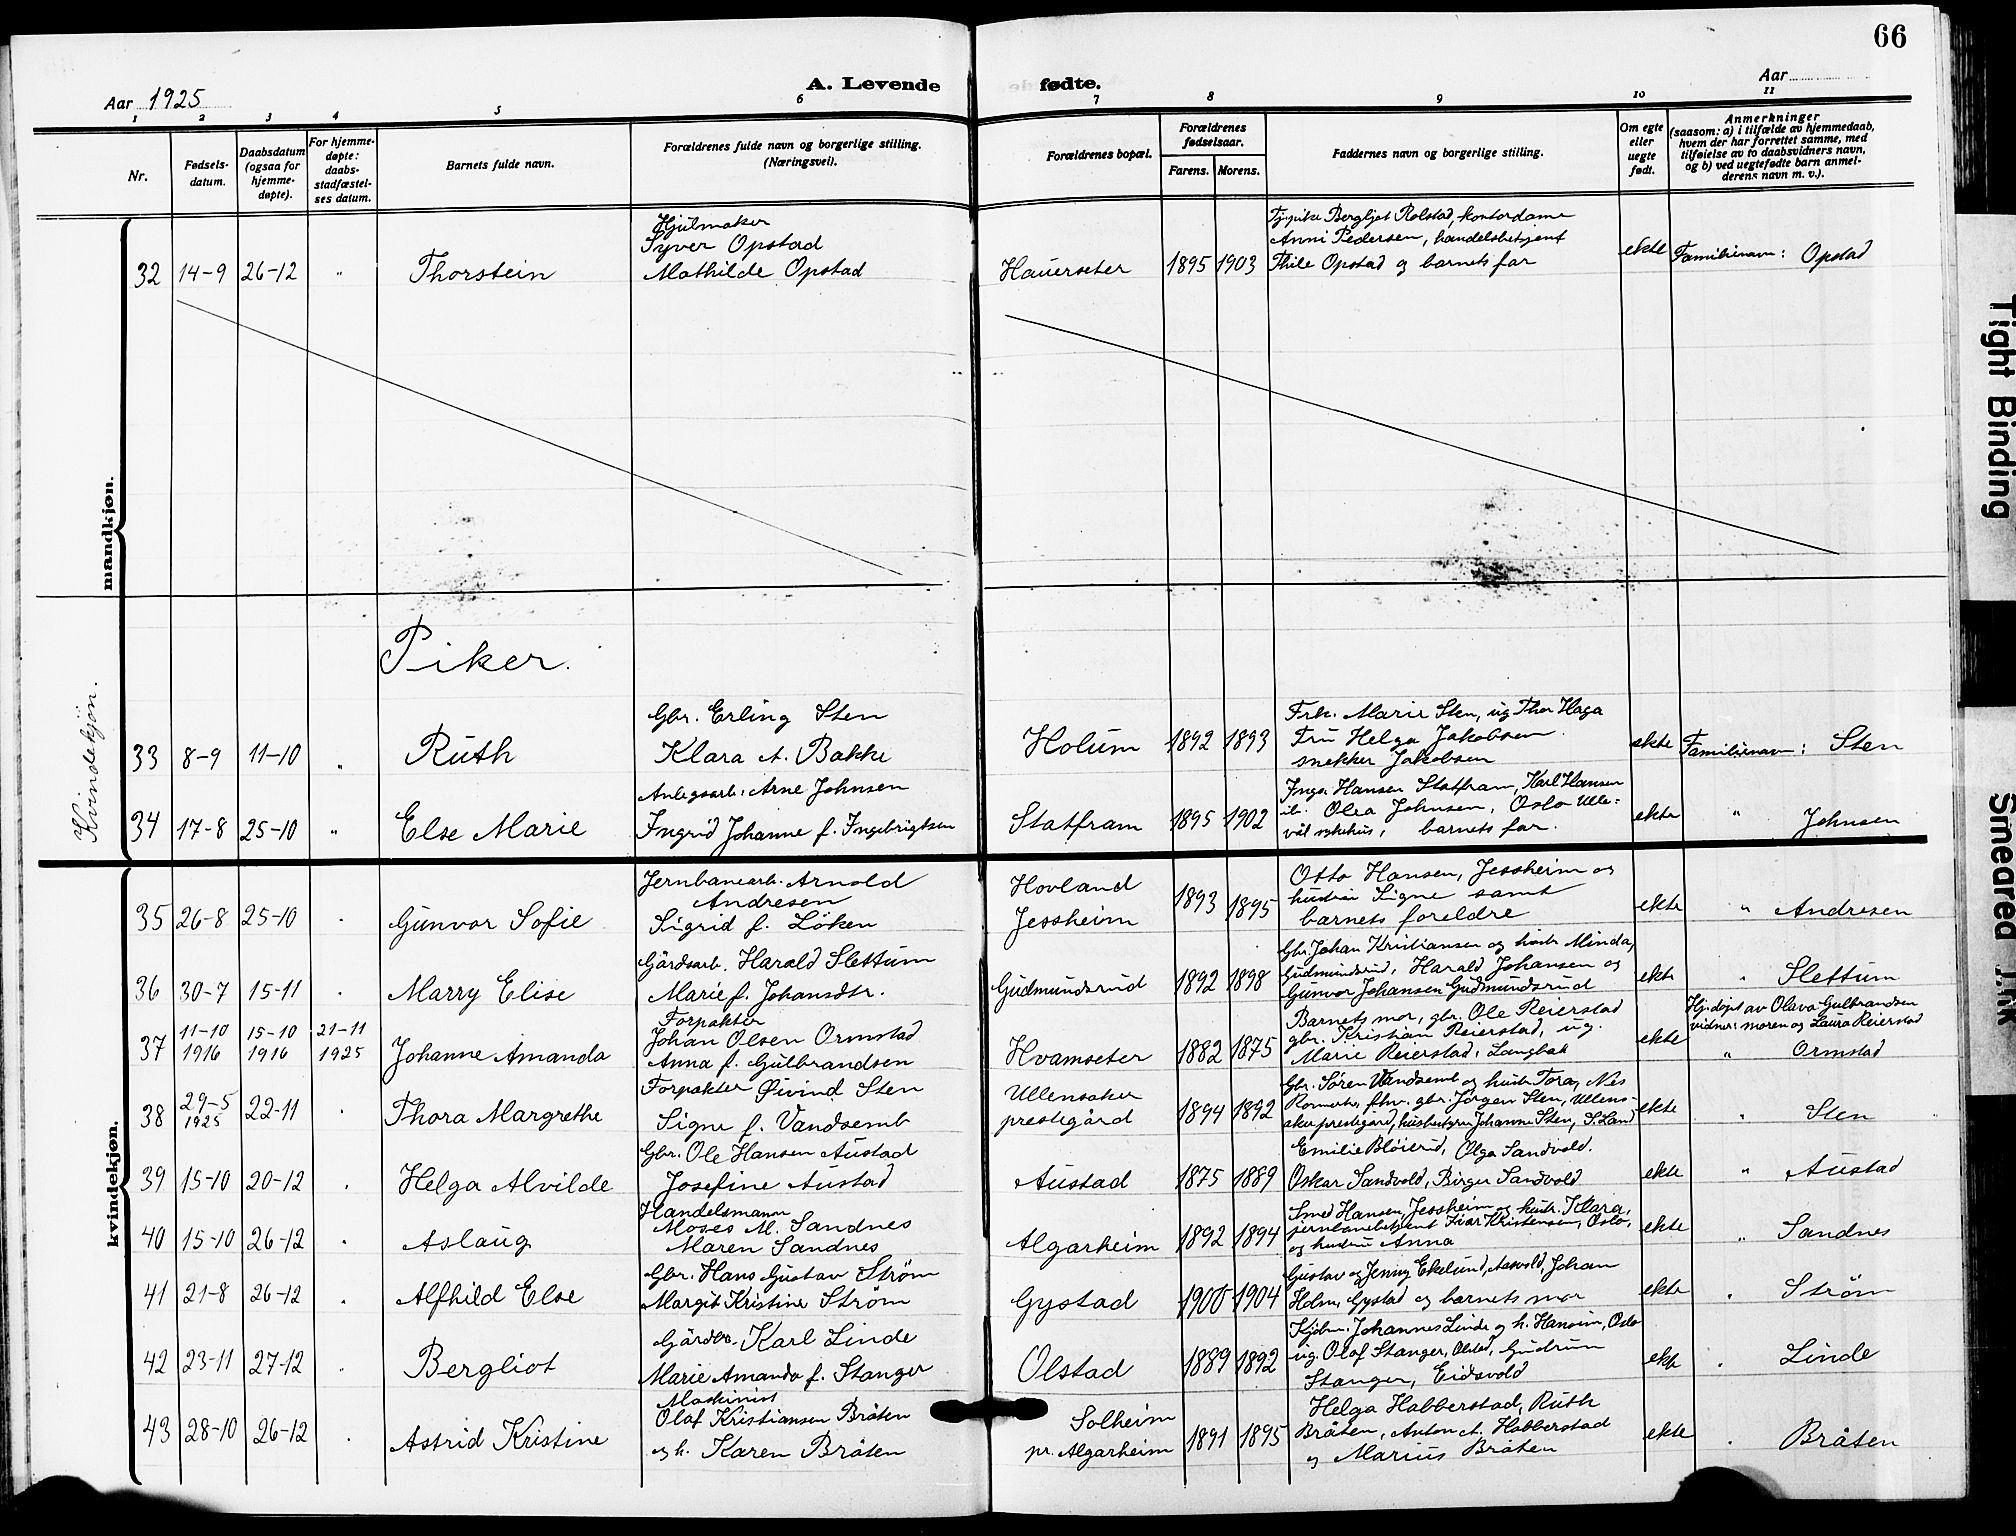 66
Aar 1925
A. Levende
fødte.
Aar
1 2 3 4 5 6 7 8 9 10 11
Nr.
Fødsels-
datum.
Daabsdatum
(ogsaa for
hjemme-
døpte).
For hjemme-
døpte:
daabs-
stadfæstel-
ses datum.
Barnets fulde navn.
Forældrenes fulde navn og borgerlige stilling.
(Næringsvei).
Forældrenes bopæl.
Forældrenes
fødselsaar.
Farens. Morens.
Faddernes navn og borgerlige stilling.
Om egte
eller
uegte
født.
Anmerkninger
(saasom: a) i tilfælde av hjemmedaab,
hvem der har forrettet samme, med
tilføielse av to daabsvidners navn,
og b) ved uegtefødte barn anmel-
derens navn m. v.).
mandkjøn.
32 14-9 26-12 " Thorstein
Hjulmaker
Syver Opstad
Mathilde Opstad
Hauerseter 1895 1903
Bergljot Rolstad, kontordame
Anni Pedersen, handelsbetjent
Thile Opstad og barnets far
ekte Familienavn: Opstad
Piker.
Kvindekjøn.
33 8-9 11-10 " Ruth
Gbr. Erling Sten
Klara A. Bakke
Holum 1892 1893
Frk. Marie Sten, ug Thor Haga
Fru Helga Jakobsen
snekker Jakobsen
ekte Familienavn: Sten
34 17-8 25-10 " Else Marie
Anlegsarb. Arne Johnsen
Ingrid Johanne f. Ingebrigtsen
Statfram 1895 1902
Inga Hansen Statfram, Karl Hansen
ib. Olea Johnsen, Oslo Ulle-
vål sykehus, barnets far.
ekte " Johnsen
kvindekjøn.
35 26-8 25-10 " Gunvor Sofie
Jernbanearb. Arnold
Andresen
Sigrid f. Löken
Hovland
Jessheim
1893 1895
Otto Hansen, Jessheim og
hustru Signe samt
barnets foreldre
ekte " Andresen
36 30-7 15-11 " Marry Elise
Gårdsarb. Harald Slettum
Marie f. Johansdtr.
Gudmundsrud 1892 1898
Gbr. Johan Kristiansen og hustr Minda,
Gudmundsrud, Harald Johansen og
Gunvor Johansen Gudmundsrud
ekte " Slettum
37 11-10 1916 15-10 1916 21-11 1925 Johanne Amanda
Forpakter
Johan Olsen Ormstad
Anna f. Gulbrandsen
Hvamseter 1882 1875
Barnets mor, gbr. Ole Reierstad
gbr. Kristian Reierstad, ug.
Marie Reierstad, Langbak
ekte
Hj.døpt av Olava Gulbrandsen
vidner: moren og Laura Reierstad
" Ormstad
38 29-5 1925 22-11 " Thora Margrethe
Forpakter Øivind Sten
Signe f. Vandsemb
Ullensaker
prestegård
1894 1892
Gbr. Sören Vandsemb og hustr Tora, Nes
Romerike, fhv. gbr. Jörgen Sten, Ullens-
aker prestegård, husbestyrer Johanne Sten, S. Land
ekte " Sten
39 15-10 20-12 " Helga Alvilde
Gbr. Ole Hansen Austad
Josefine Austad
Austad 1875 1889
Emilie Bløierud, Olga Sandvold.
Oskar Sandvold, Birger Sandvold
ekte " Austad
40 15-10 26-12 " Aslaug
Handelsmann
Moses M. Sandnes
Maren Sandnes
Algarheim 1892 1894
Smed Hansen, Jessheim og hustr. Klara,
jernbanebetjent Ivar Kristensen, Oslo,
og hustru Anna
ekte " Sandnes
41 21-8 26-12 " Alfhild Else
Gbr. Hans Gustav Strøm
Margit Kristine Strøm
Gystad 1900 1904
Gustav og Jenny Ekelund, Aasvold, Johan
Holm, Gystad og barnets mor
ekte " Strøm
42 23-11 27-12 " Bergliot
Gårdbr. Karl Linde
Marie Amanda f. Stanger
Olstad 1889 1892
Kjøbm. Johannes Linde og h. Hansine, Oslo
ug. Olaf Stanger, Olstad, Gudrun
Stanger, Eidsvold
ekte " Linde
43 28-10 26-12 " Astrid Kristine
Maskinist
Olaf Kristiansen Bråten
og h. Karen Bråten
Solheim
pr. Algarheim
1891 1895
Helga Habberstad, Ruth
Bråten, Anton A. Habberstad
og Marius Bråten
ekte " Bråten
Tight Binding
Smeared Ink